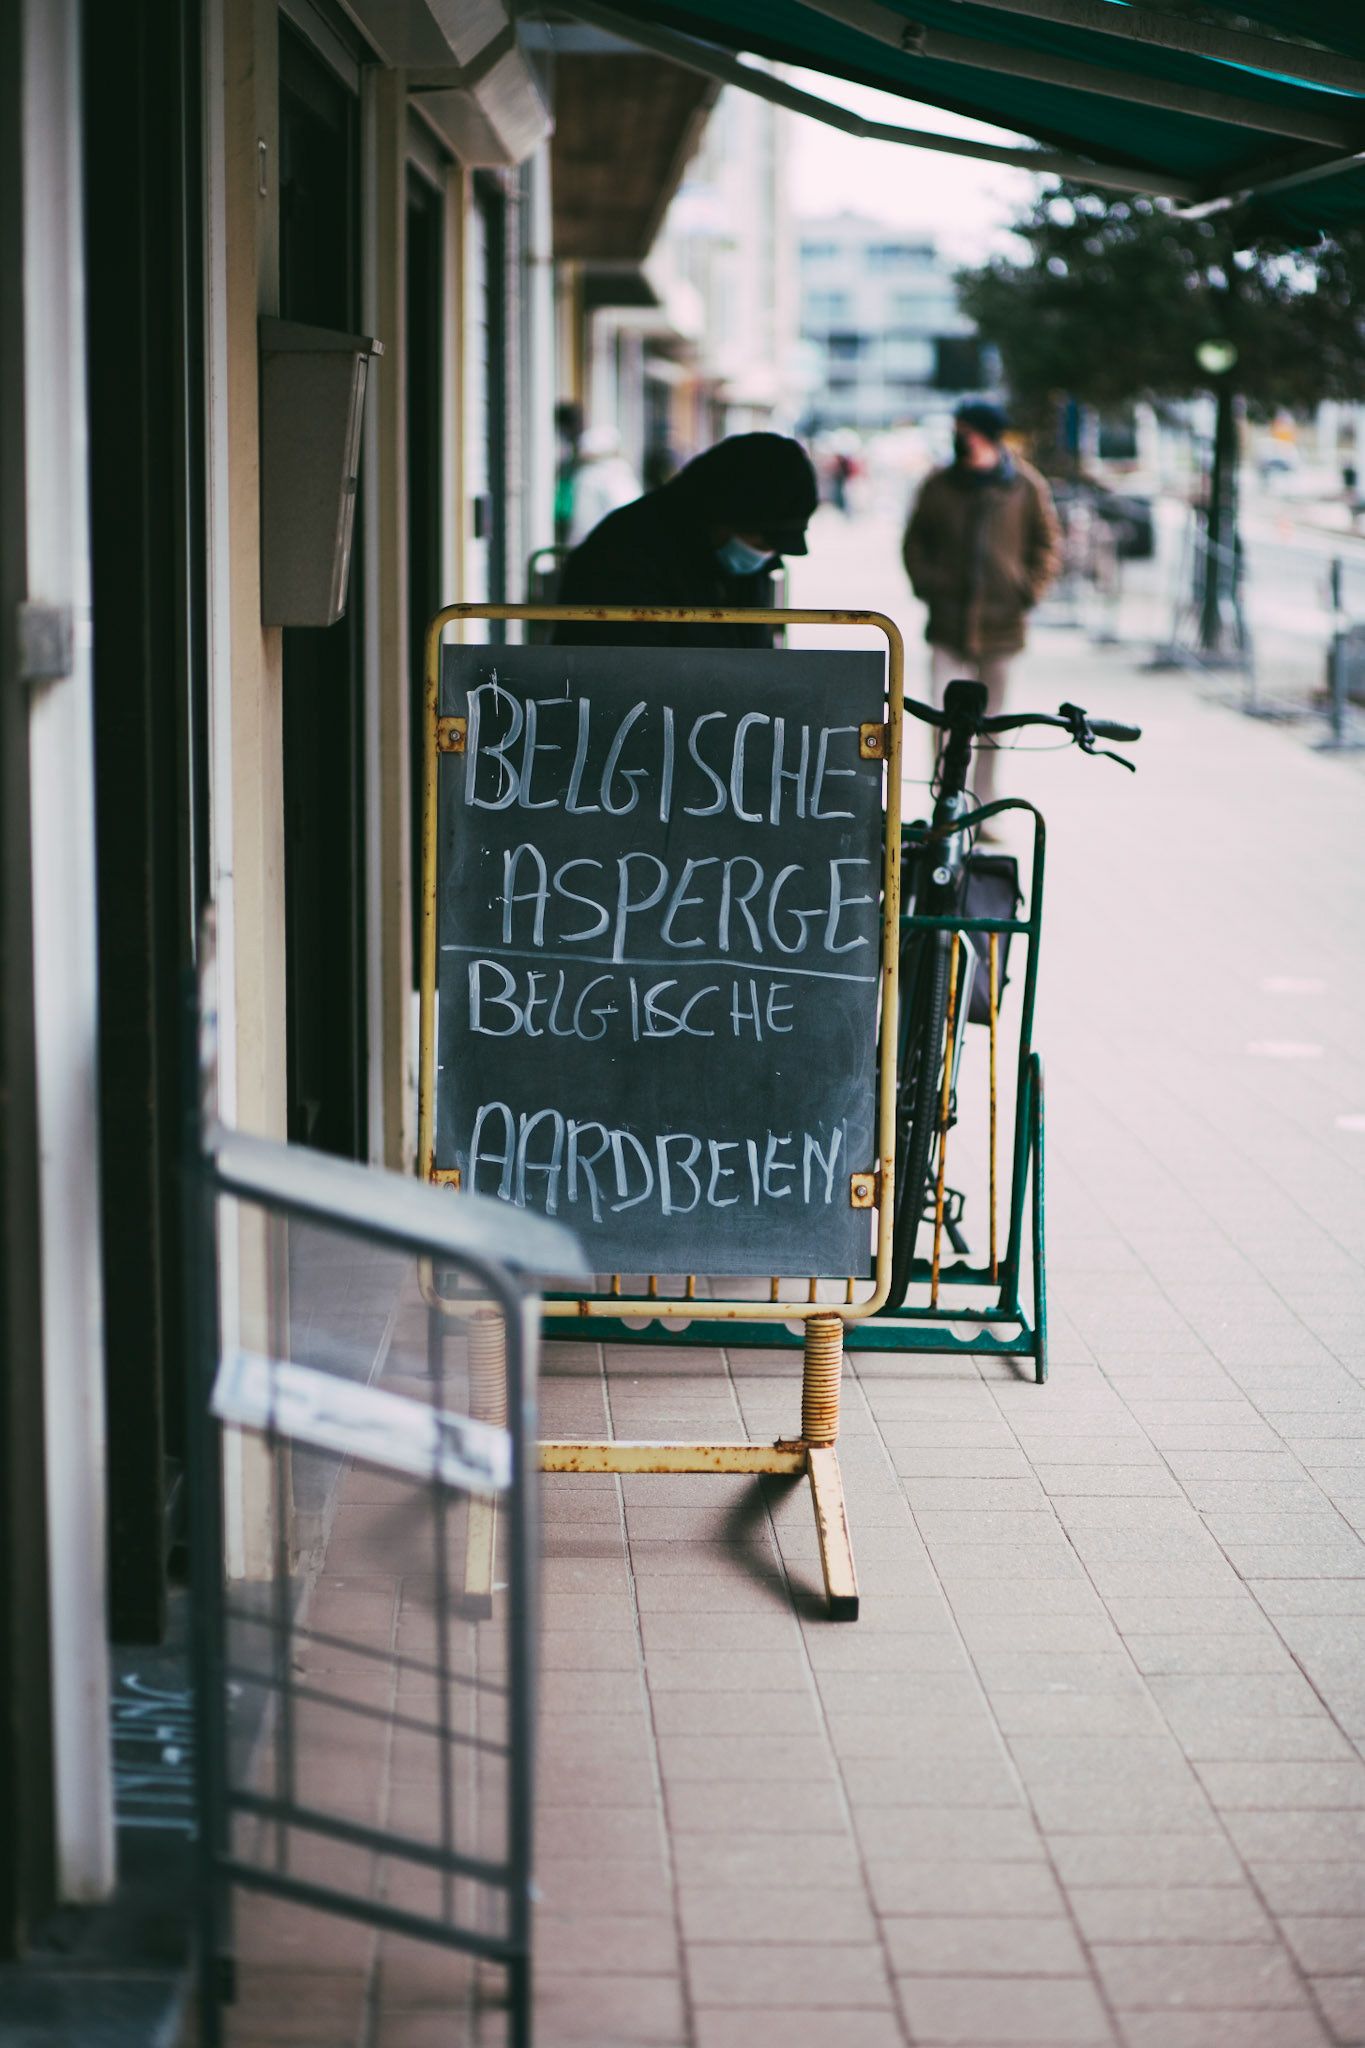 BELGISCHE
ASPERGE
BELGISCHE
AARDBEIEN